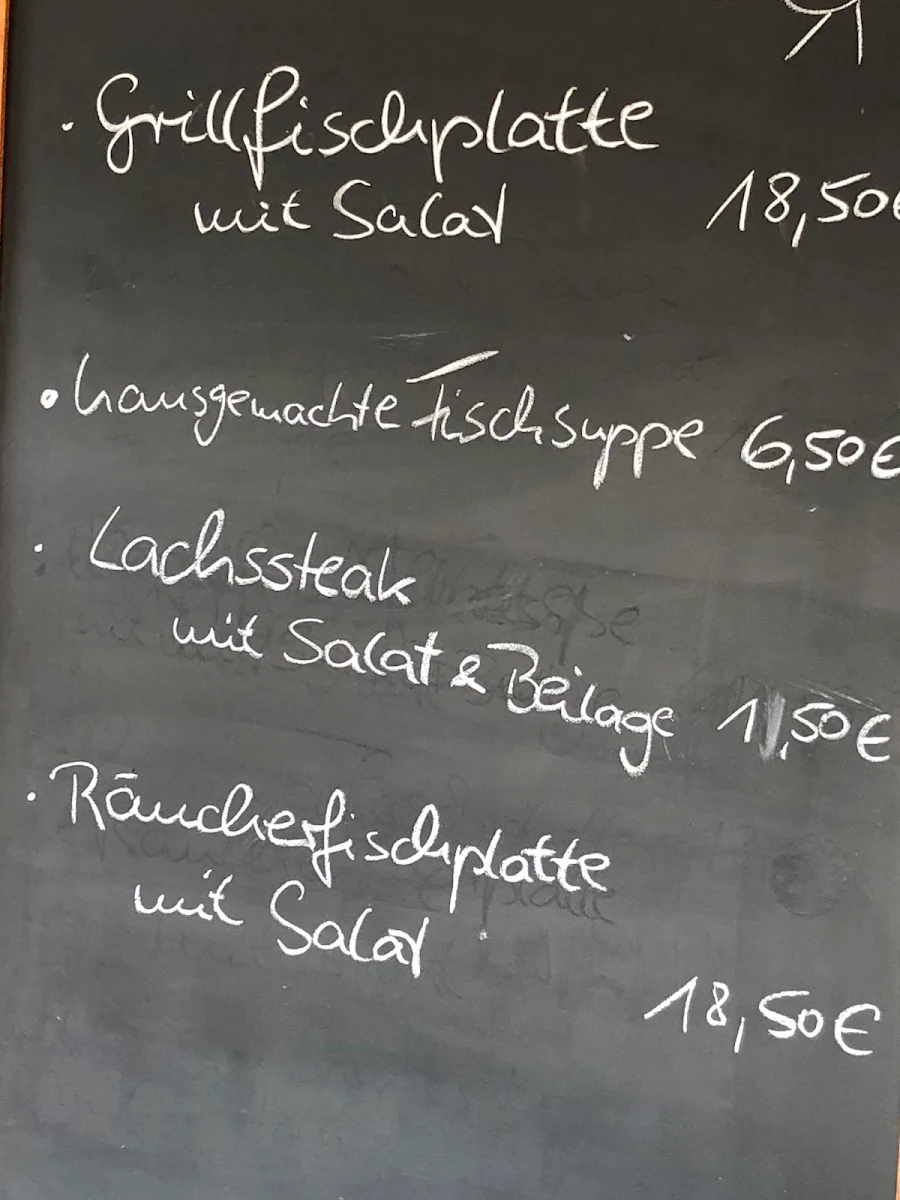 · Grillfischplatte
mit Salat 18,50€
· hausgemachte Fischsuppe 6,50€
· Lachssteak
mit Salat & Beilage 11,50€
· Räucherfischplatte
mit Salat
18,50€